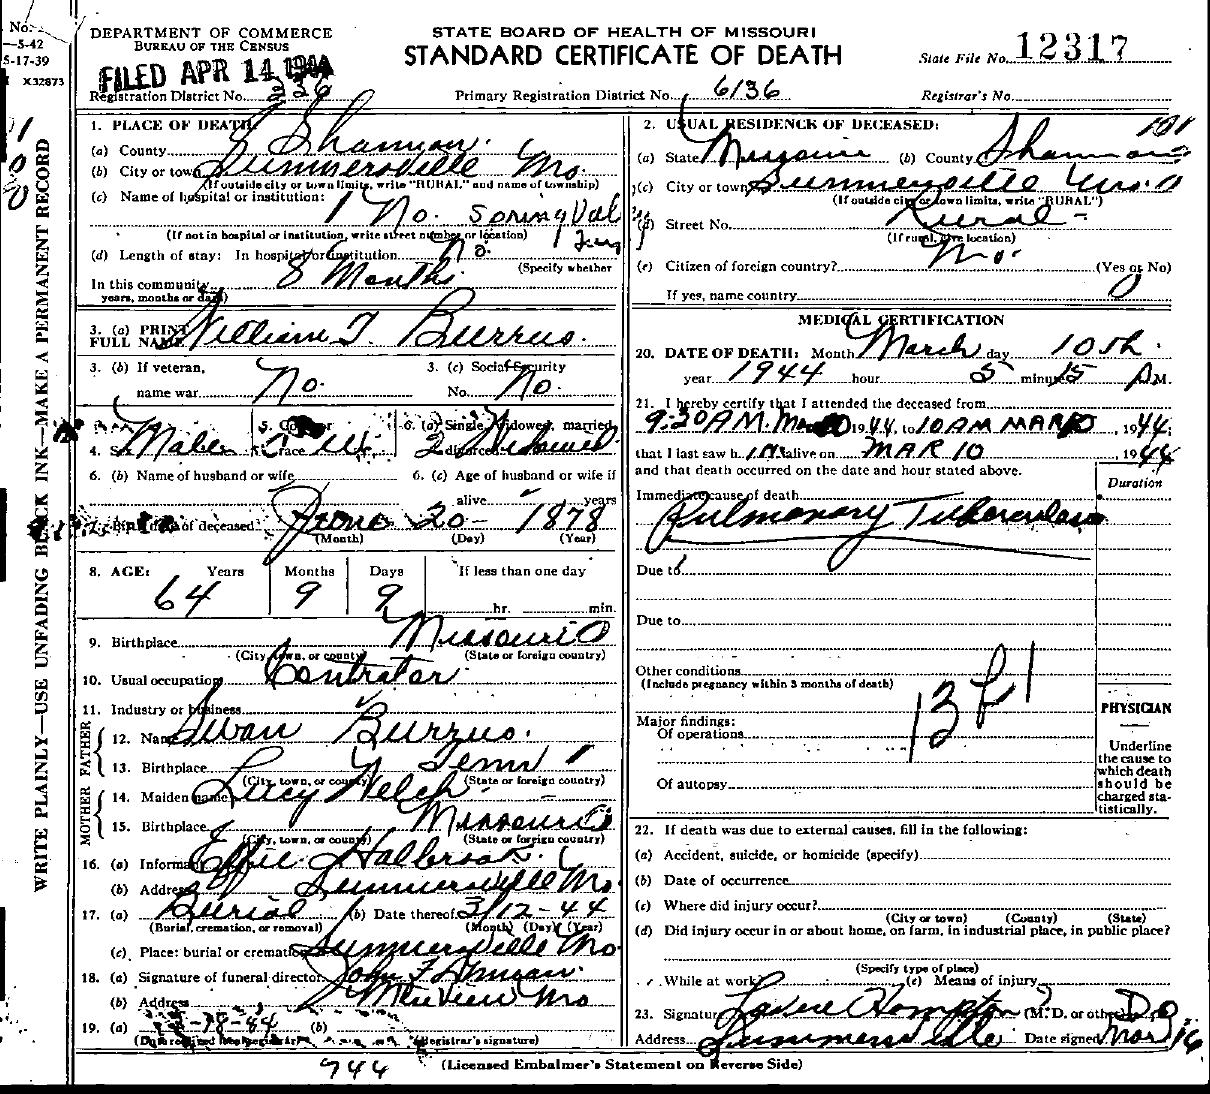 No.
—5-42
5-17-39
I X32873
DEPARTMENT OF COMMERCE
BUREAU OF THE CENSUS
FILED APR 14 1944
Registration District No.
STATE BOARD OF HEALTH OF MISSOURI
STANDARD CERTIFICATE OF DEATH
Primary Registration District No. 6136
State File No. 12317
Registrar's No.
WRITE PLAINLY—USE UNFADING BLACK INK—MAKE A PERMANENT RECORD
1. PLACE OF DEATH:
(a) County Shannon
(b) City or town Summersville Mo.
(If outside city or town limits, write "RURAL" and name of township)
(c) Name of hospital or institution:
No. Spring Val
(If not in hospital or institution, write street number or location)
(d) Length of stay: In hospital or institution No.
(Specify whether
In this community 8 Months
years, months or days)
3. (a) PRINT FULL NAME William T. Burrus.
3. (b) If veteran, name war No.
3. (c) Social Security No. No.
4. Sex Male
5. Color or race W.
6. (a) Single, widowed, married, divorced Widowed
6. (b) Name of husband or wife
6. (c) Age of husband or wife if alive years
7. Birth date of deceased June 20 - 1878
(Month) (Day) (Year)
8. AGE: Years Months Days If less than one day
64 9 9 hr. min.
9. Birthplace Missouri
(City, town, or county) (State or foreign country)
10. Usual occupation Contrator
11. Industry or business
FATHER
12. Name Swan Burrus.
13. Birthplace Tenn
(City, town, or county) (State or foreign country)
MOTHER
14. Maiden name Lucy Welch
15. Birthplace Missouri
(City, town, or county) (State or foreign country)
16. (a) Informant Effie Halbrook.
(b) Address Summersville Mo.
17. (a) Burial (b) Date thereof 3/12-44
(Burial, cremation, or removal) (Month) (Day) (Year)
(c) Place: burial or cremation Summersville Mo
18. (a) Signature of funeral director John F
(b) Address Mo
19. (a) (b)
(Date received local registrar) (Registrar's signature)
944
2. USUAL RESIDENCE OF DECEASED:
101
(a) State Missouri (b) County Shannon
(c) City or town Summersville Mo. 0
(If outside city or town limits, write "RURAL")
(d) Street No. Rural -
(If rural, give location)
(e) Citizen of foreign country? No. (Yes or No)
If yes, name country 0
MEDICAL CERTIFICATION
20. DATE OF DEATH: Month March day 10th.
year 1944 hour 5 minute 15 A M.
21. I hereby certify that I attended the deceased from
9:30 AM. Mar 10 1944, to 10 AM MAR 10, 1944;
that I last saw h im alive on MAR 10, 1944
and that death occurred on the date and hour stated above.
Duration
Immediate cause of death
Pulmonary Tuberculosis
Due to
Due to
Other conditions
(Include pregnancy within 3 months of death)
13 b1
Major findings:
Of operations
Of autopsy
PHYSICIAN
Underline the cause to which death should be charged statistically.
22. If death was due to external causes, fill in the following:
(a) Accident, suicide, or homicide (specify)
(b) Date of occurrence
(c) Where did injury occur?
(City or town) (County) (State)
(d) Did injury occur in or about home, on farm, in industrial place, in public place?
(Specify type of place)
While at work? (e) Means of injury
23. Signature Hompton (M. D. or other) DO
Address Summersville Date signed Mar 16
(Licensed Embalmer's Statement on Reverse Side)